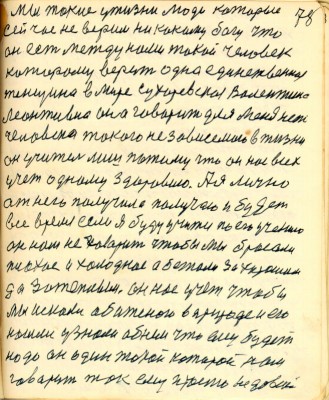 78
Мы такие у жизни люди которые
сейчас не верим никакому богу что
он ест между нами такой человек
которому верит одна единственная
женщина в мире Сухоревская Валентина
Леонтивна она говорит для меня нет
человека такого независемова в жизни
он учител миш потому что он нас всех
учет одному здоровию. А я лично
от него получила получаю и будет
все время если я буду учит по его учению
он нам не говорит чтобы мы бросали
плохое и холодное а бетали за хорошим
да за теплым. он нас учет чтобы
мы искали
в природе и его
нашли узнали об нем что ему будет
надо он один такой которой нам
говарит так ему просто не довай